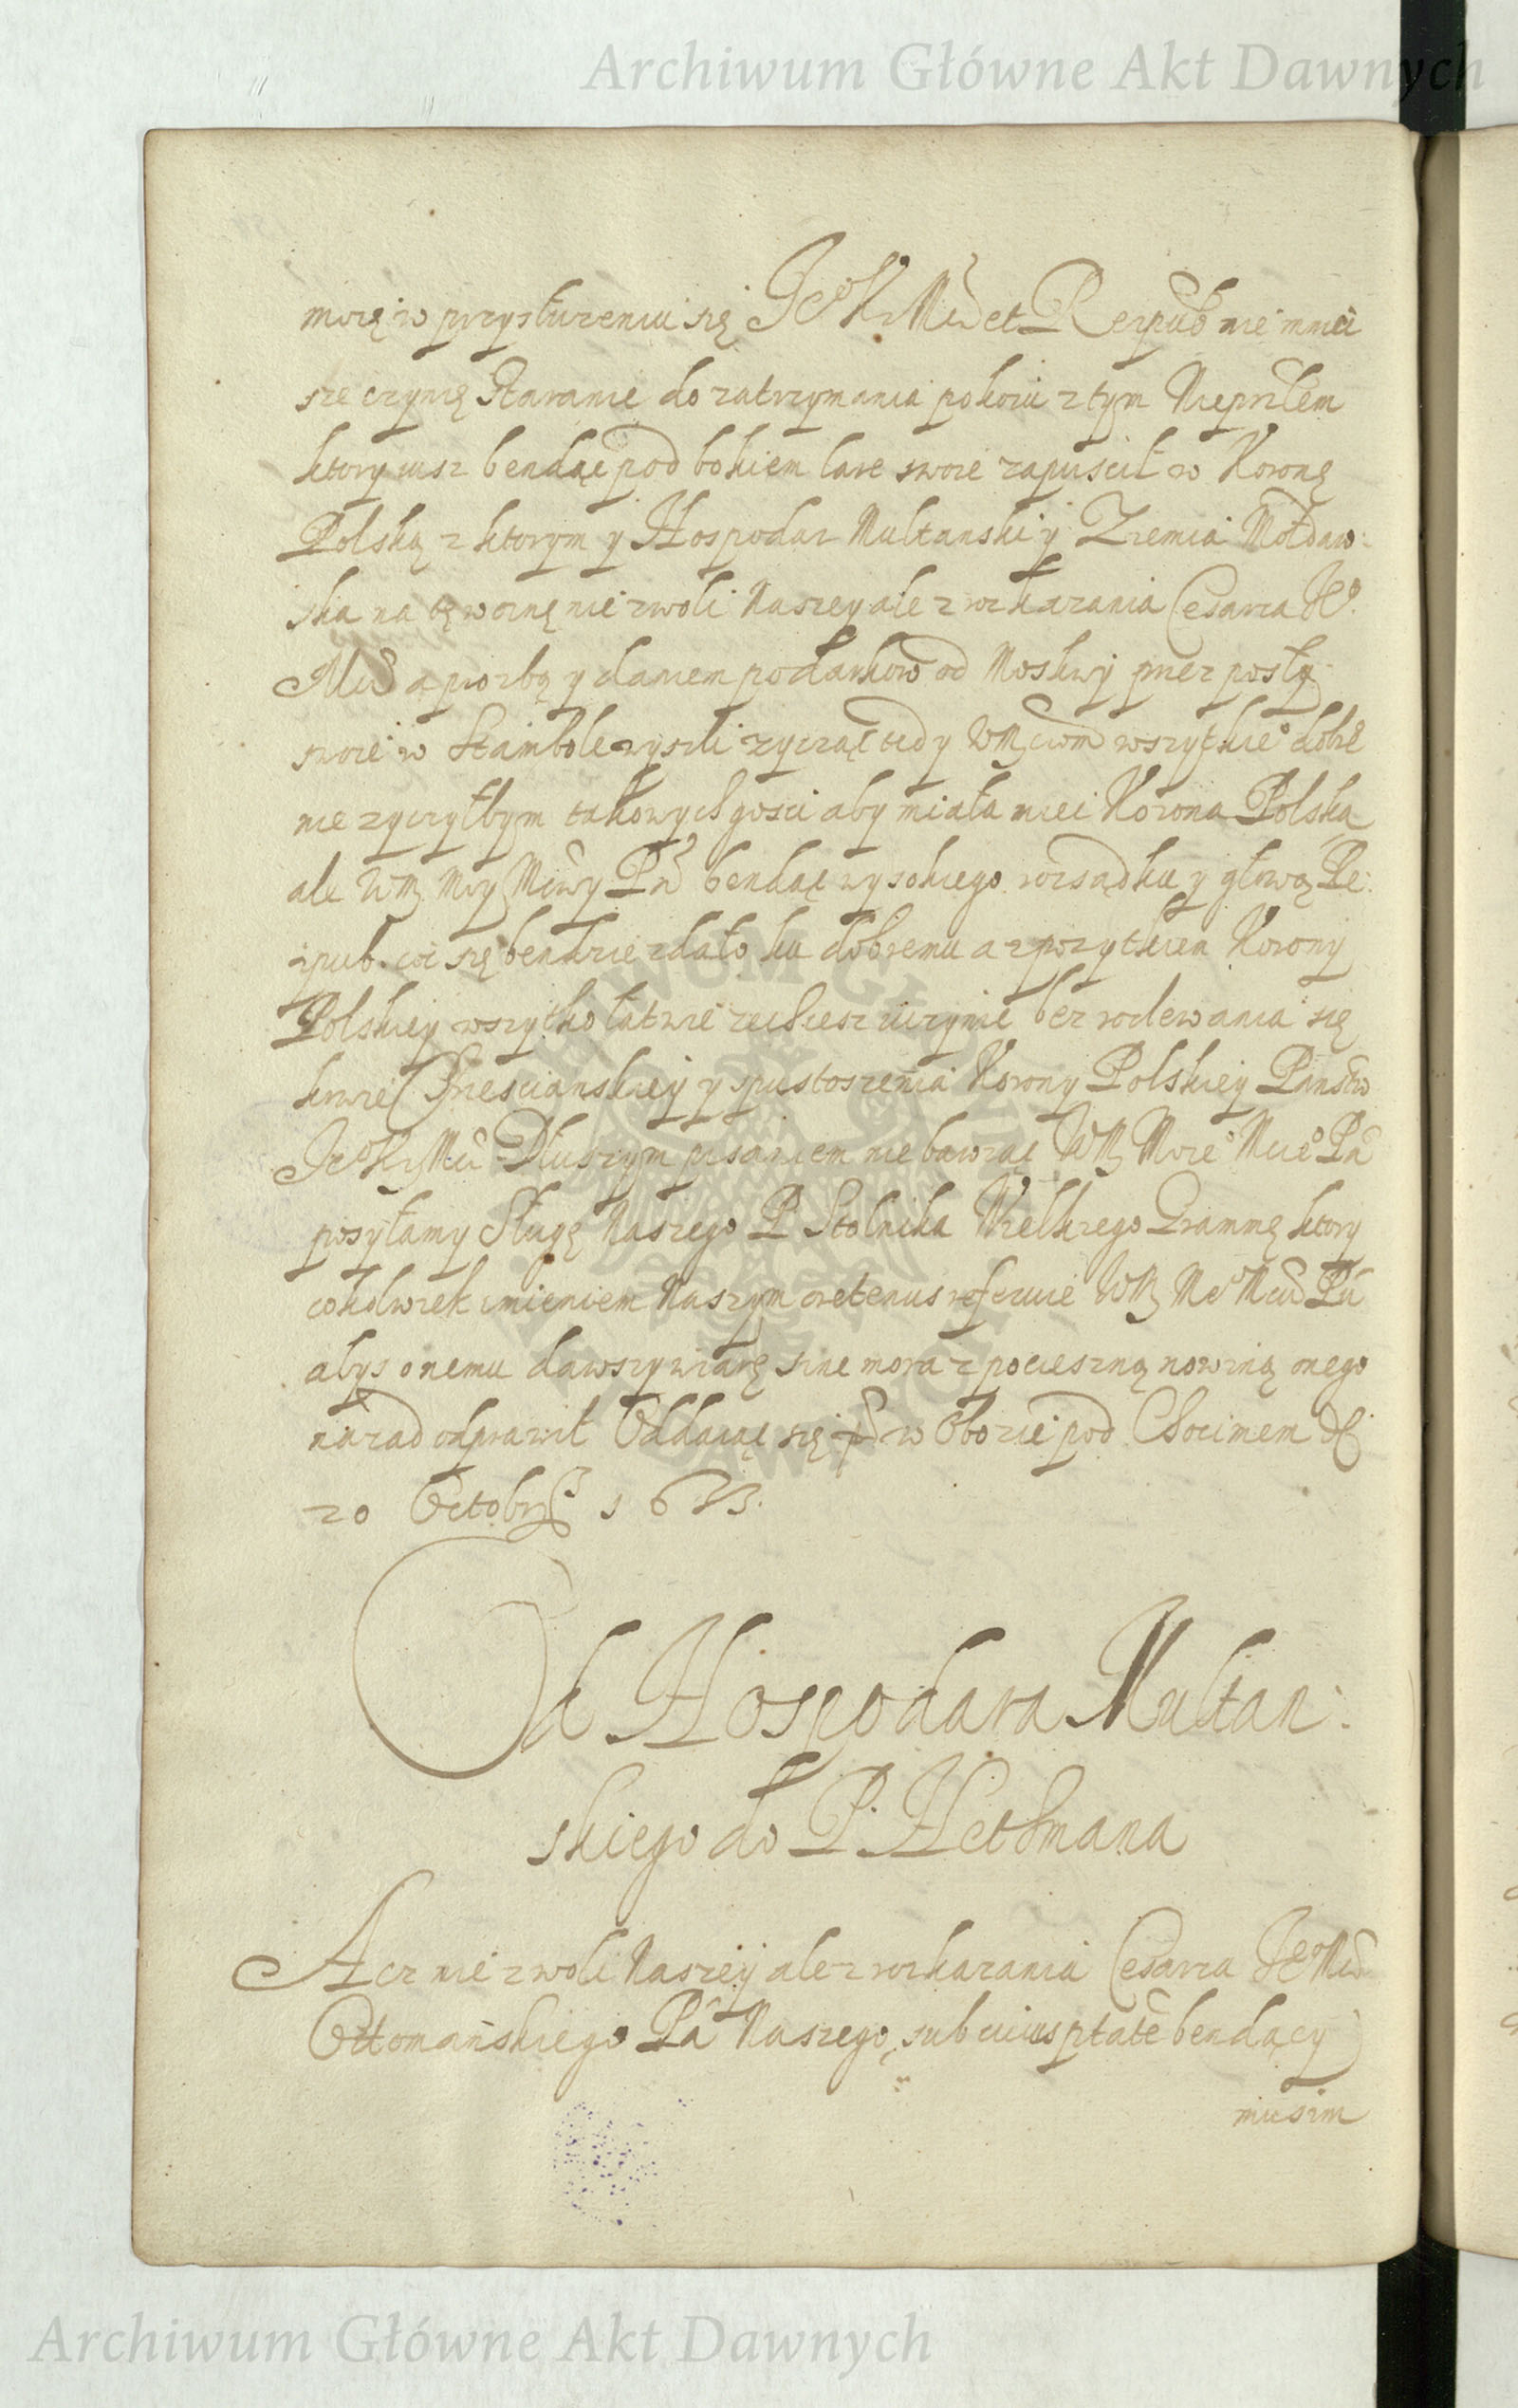 Archiwum Główne Akt Dawnych
moię w przysłuzeniu się Jeo K Mci et Reipub nie mnei
sze czynię staranie do zatrzymania pokoiu z tym Nieprzlem
ktory iusz bendąc pod bokiem lare swoie zapuscił w Koronę
Polską z ktorym y Hospodar Multanski y Ziemia Mołdaw:
ska na tę woinę nie z woli Naszey ale z rozkazania Cesarza Jeo
Mci a prozbą y daniem podarkow od Moskwy przez posły
swoie w Stambole wyszli zycząc tedy WM wszytkieo dobrе
nie zyczyłbym takowych gosci aby miała miei Korona Polska
ale WM Moy Mciwy Pn bendąc wysokiego rozsądku y głową Re:
ipub. coć się bendzie zdało ku dobremu a z pozytkiem Korony
Polskiey wszytko łatwie zechcesz uczynic bez rozlewania się
krwie Chrzescianskiey y spustoszenia Korony Polskiey Panstw
Jeo K Mci Dłuszym pisaniem nie bawiąc WM Moieo Mcieo Pa
posyłamy Sługę Naszego P Stolnika Wielkiego Grammę ktory
cokolwiek imieniem Naszym oretenus referuie WM Me Mciu Pu
abys onemu dawszy wiarę sine mora z pocieszną nowiną onego
nazad odprawił Oddaiąc się w Obozie pod Chocimem d
20 Octobris 1653.
Od Hospodara Multan:
skiego do P. Hethmana
Acz nie z woli Naszey ale z rozkazania Cesarza Jeo Mci
Ottomańskiego Pa Naszego, sub cuius ptate bendący
musim
Archiwum Główne Akt Dawnych